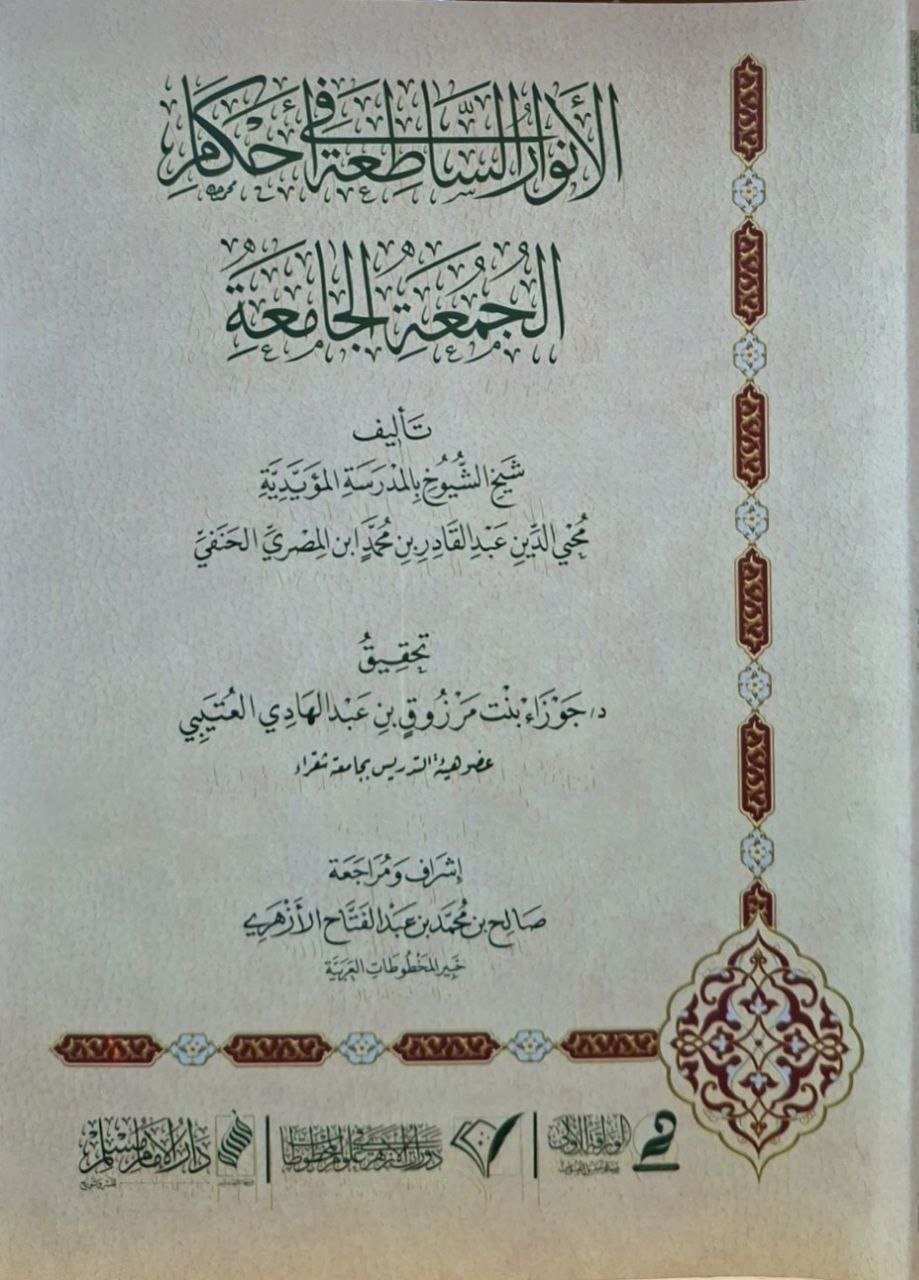 الأنوار السَّاطِعَة في أَحْكَام
الجُمُعَةِ الجَامَعَةِ
تَأليف
شَيخ الشُّيُوخ بِالمَدْرَسَة المؤيَّدِيَّةِ
مُحْيي الدِّينِ عَبْدِ القَادِرِ بنِ مُحمَّدٍ ابن المِصْرِيِّ الحَنَفيِّ
تحقِيقُ
د/ جَوْزَاءْ بنْت مَرْزُوقٍ بنِ عَبْد الهَادِي العُتَيبِي
عضو هيئة التدريس بجامعة شقراء
إشرَاف وَمُرَاجَعَة
صَالِح بن مُحمَّد بن عَبْد الفَتَّاح الأَزْهَرِي
خَبير المَخْطُوطَات العَرَبيَّة
دَار الإمَام مُسْلِم
للنشر والتوزيع